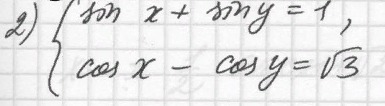 2) { sin x + sin y = 1,
cos x − cos y = √3